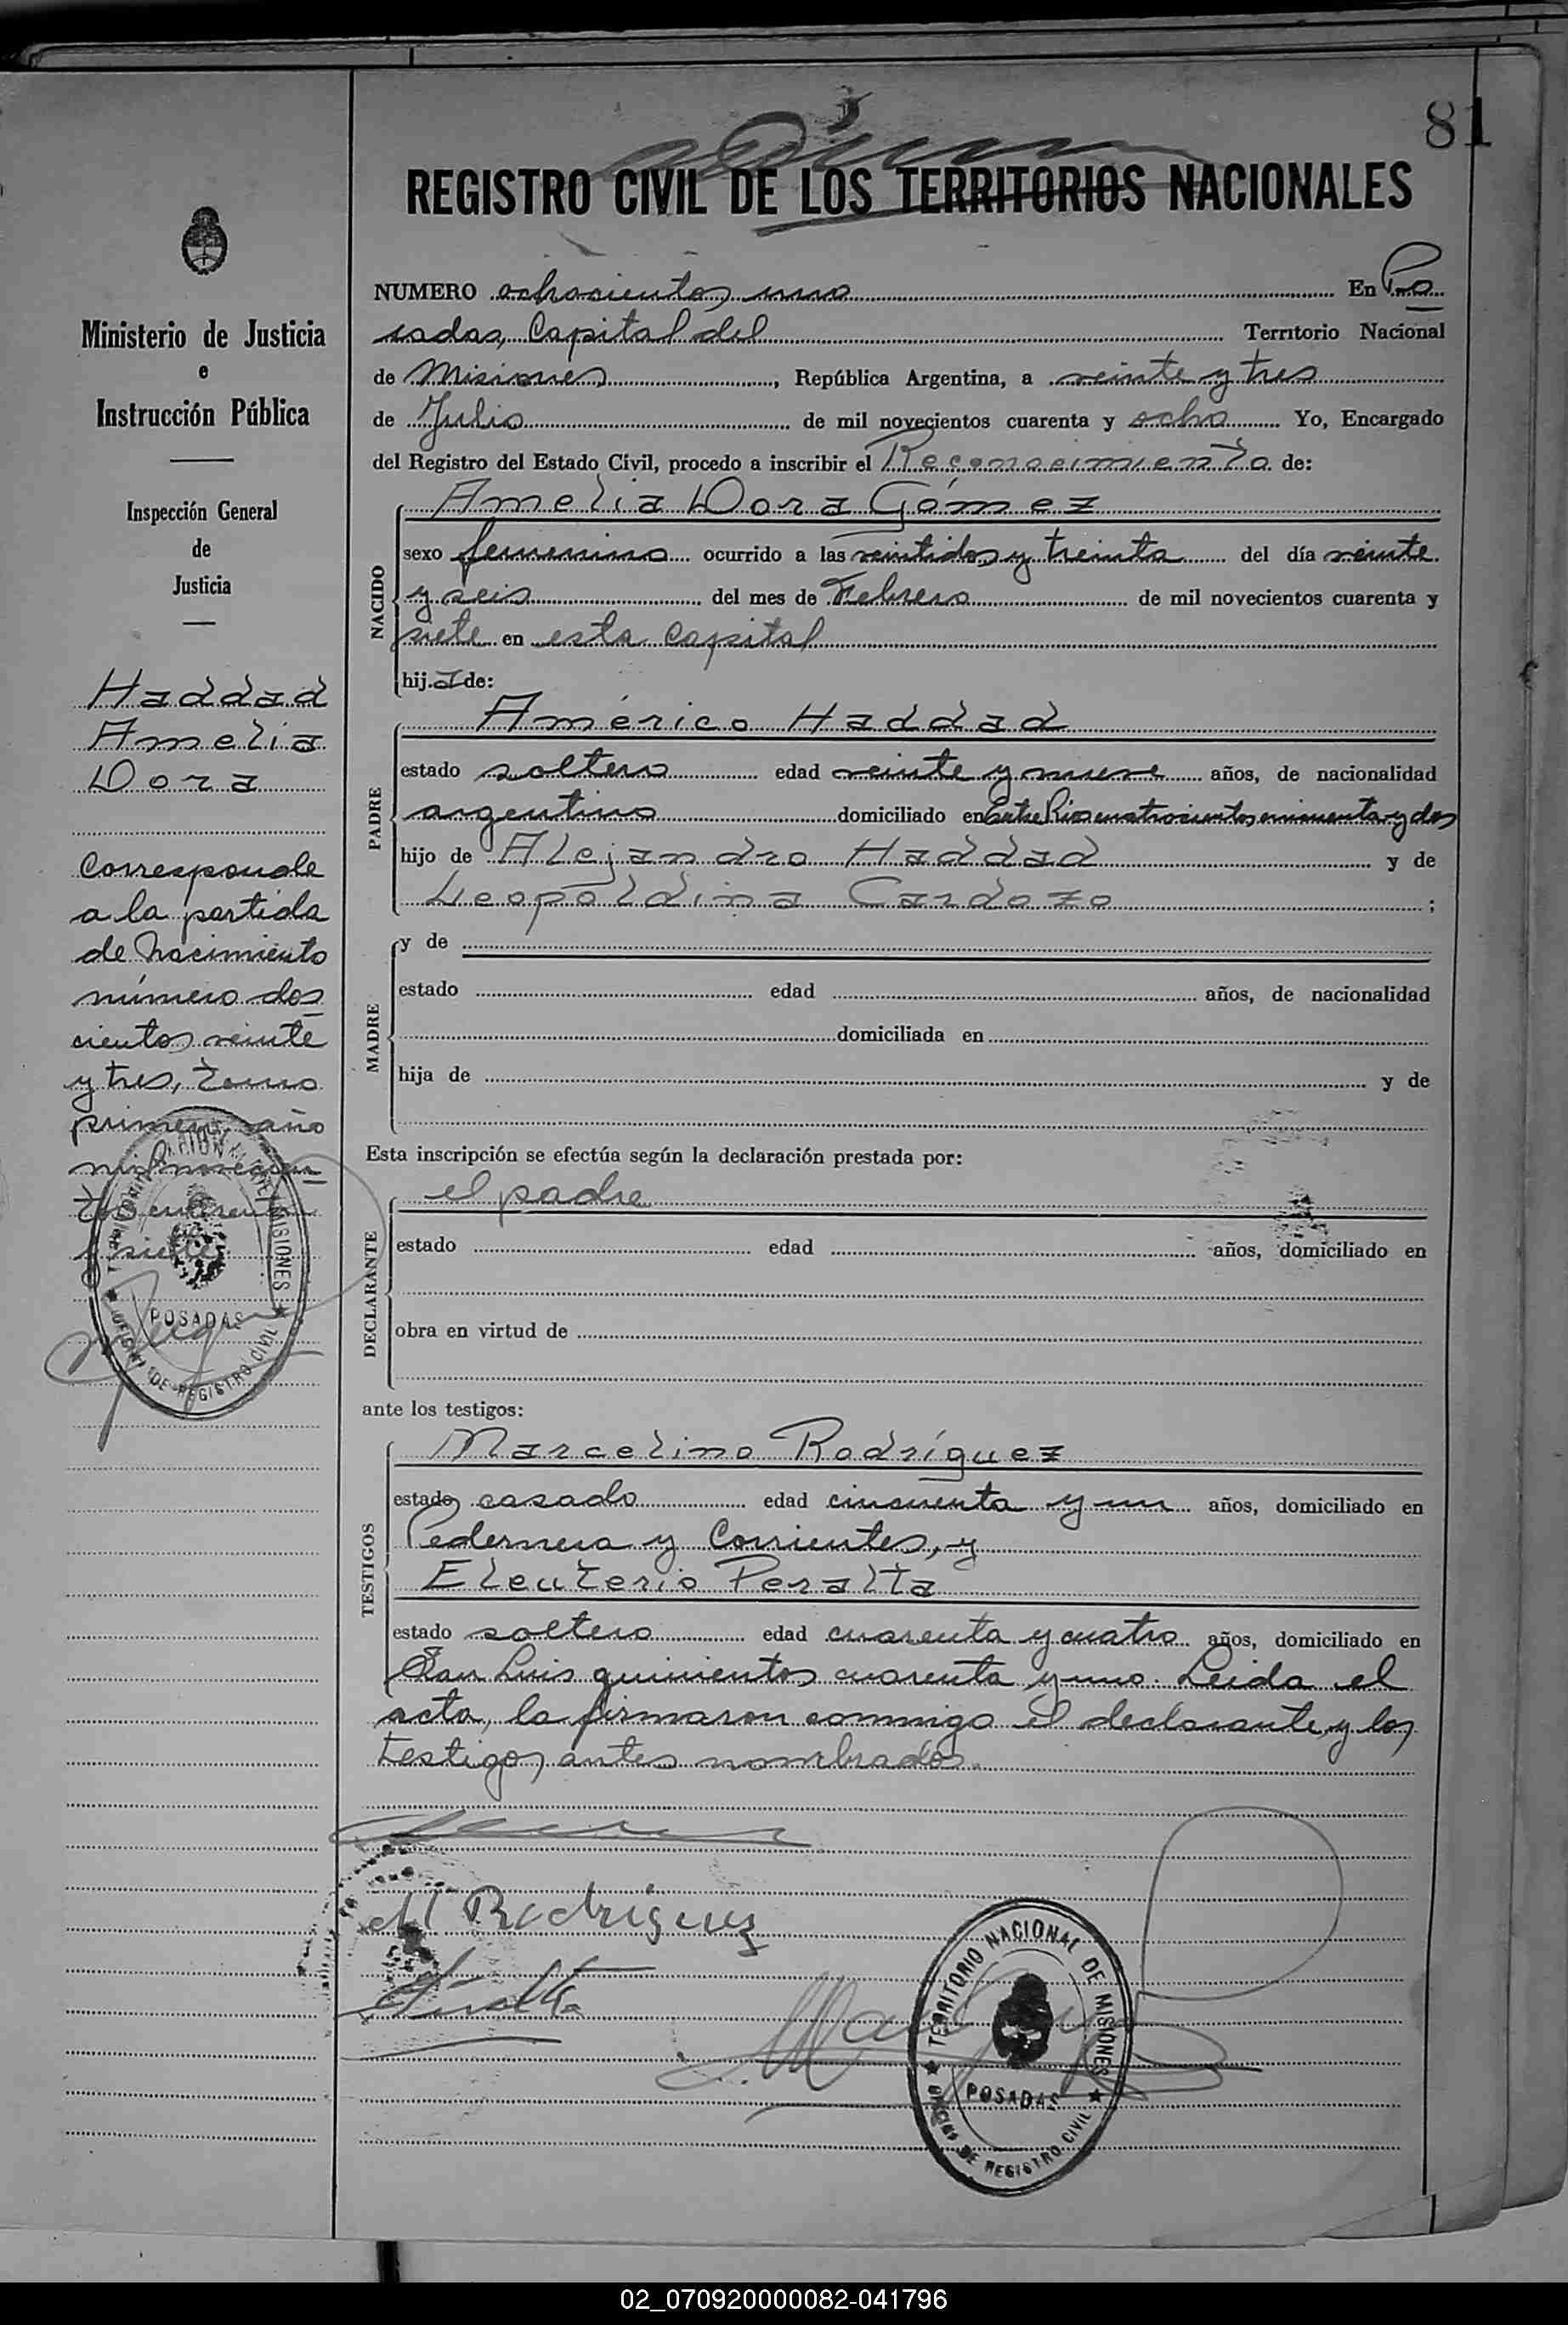 81
REGISTRO CIVIL DE LOS TERRITORIOS NACIONALES
Ministerio de Justicia
e
Instrucción Pública
Inspección General
de
Justicia
Haddad
Amelia
Dora
Corresponde
a la partida
de Nacimiento
número dos
cientos veinte
y tres, tomo
primero, año
mil novecien
tos cuarenta
y siete
NUMERO ochocientos uno En Po
sadas, Capital del Territorio Nacional
de Misiones, República Argentina, a veinte y tres
de Julio de mil novecientos cuarenta y ocho Yo, Encargado
del Registro del Estado Civil, procedo a inscribir el Reconocimiento de:
NACIDO
Amelia Dora Gómez
sexo femenino ocurrido a las veintidos y treinta del día veinte
y seis del mes de Febrero de mil novecientos cuarenta y
siete en esta Capital
hija de:
PADRE
Américo Haddad
estado soltero edad veinte y nueve años, de nacionalidad
argentino domiciliado en Entre Rios cuatrocientos cincuenta y dos
hijo de Alejandro Haddad y de
Leopoldina Cardozo ;
MADRE
y de
estado edad años, de nacionalidad
domiciliada en
hija de y de
Esta inscripción se efectúa según la declaración prestada por:
DECLARANTE
el padre
estado edad años, domiciliado en
obra en virtud de
ante los testigos:
TESTIGOS
Marcelino Rodríguez
estado casado edad cincuenta y un años, domiciliado en
Pedernera y Corrientes, y
Eleuterio Peralta
estado soltero edad cuarenta y cuatro años, domiciliado en
San Luis quinientos cuarenta y uno. Leida el
acta, la firmaron conmigo el declarante y los
testigos antes nombrados.
M Rodriguez
TERRITORIO NACIONAL DE MISIONES
POSADAS
OFICINA DE REGISTRO CIVIL
TERRITORIO NACIONAL DE MISIONES
POSADAS
OFICINA DE REGISTRO CIVIL
02_070920000082-041796